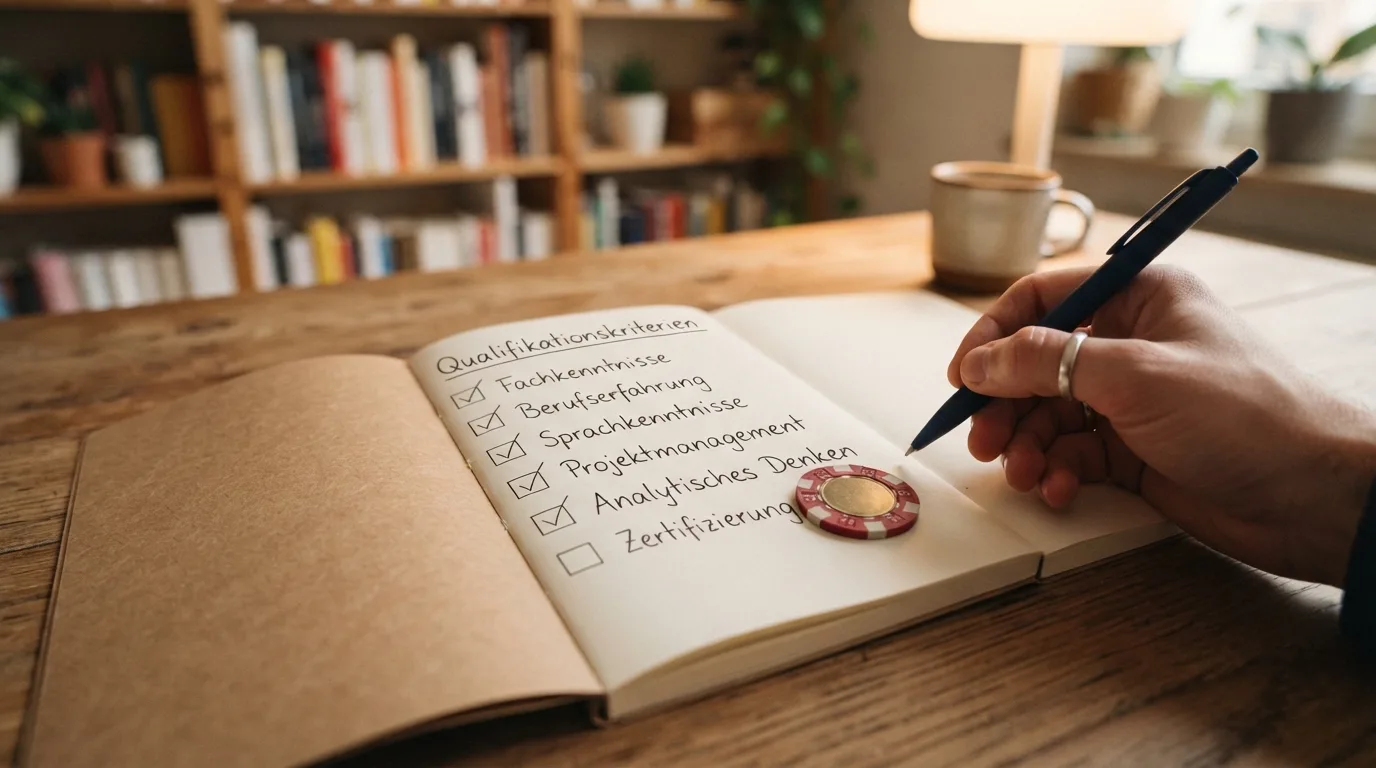 Qualifikationskriterien
Fachkenntnisse
Berufserfahrung
Sprachkenntnisse
Projektmanagement
Analytisches Denken
Zertifizierung